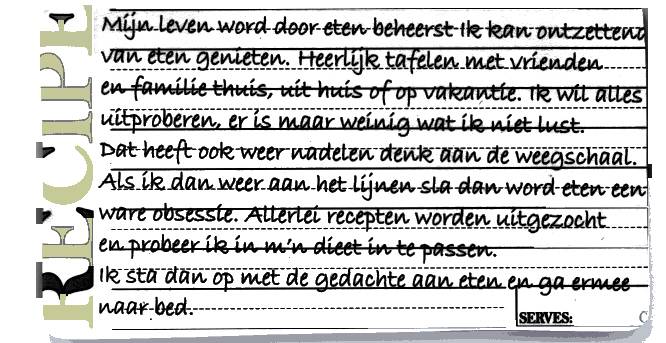 RECIPE
Mijn leven word door eten beheerst Ik kan ontzettend
van eten genieten. Heerlijk tafelen met vrienden
en familie thuis, uit huis of op vakantie. Ik wil alles
uitproberen, er is maar weinig wat ik niet lust.
Dat heeft ook weer nadelen denk aan de weegschaal.
Als ik dan weer aan het lijnen sla dan word eten een
ware obsessie. Allerlei recepten worden uitgezocht
en probeer ik in m'n dieet in te passen.
Ik sta dan op met de gedachte aan eten en ga ermee
naar bed.
SERVES: